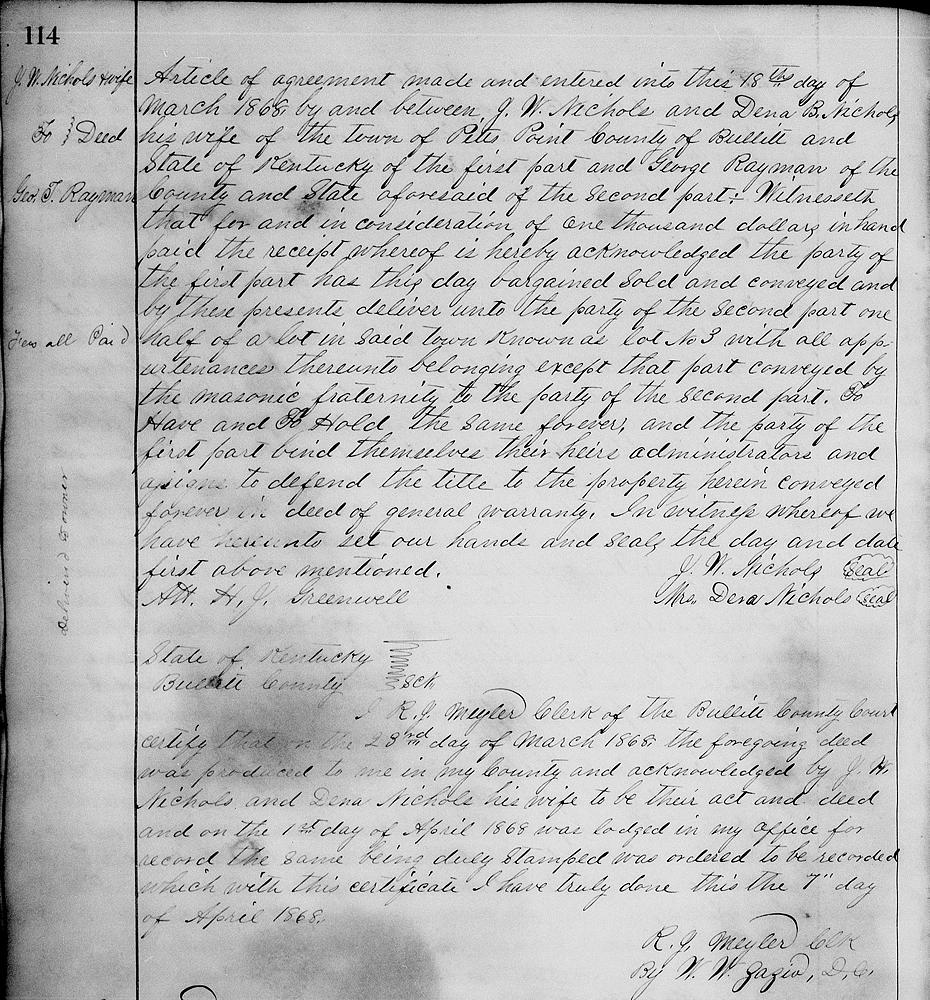 114
J. W. Nichols & wife
To } Deed
Geo. T. Rayman
Fees all Paid
Delivered to owner
Article of agreement made and entered into this 18th day of
March 1868, by and between J. W. Nichols and Dena B. Nichols
his wife of the town of Pitts Point County of Bullitt and
State of Kentucky of the first part and George Rayman of the
County and State aforesaid of the second part: Witnesseth
that for and in consideration of one thousand dollars in hand
paid the receipt whereof is hereby acknowledged the party of
the first part has this day bargained sold and conveyed and
by these presents deliver unto the party of the second part one
half of a lot in said town Known as lot No 3 with all app-
urtenances thereunto belonging except that part conveyed by
the masonic fraternity to the party of the second part. To
Have and To Hold the same forever, and the party of the
first part bind themselves their heirs administrators and
assigns to defend the title to the property herein conveyed
forever in deed of general warranty. In witness whereof we
have hereunto set our hands and seals the day and date
first above mentioned.
J. W. Nichols (Seal)
Att. H. J. Greenwell
Mrs. Dena Nichols (Seal)
State of Kentucky
Bullitt County } Sct.
I R. J. Meyler Clerk of the Bullitt County Court
certify that on the 23rd day of March 1868 the foregoing deed
was produced to me in my County and acknowledged by J. W.
Nichols and Dena Nichols his wife to be their act and deed
and on the 1st day of April 1868 was lodged in my office for
record the same being duly Stamped was ordered to be recorded
which with this certificate I have truly done this the 7" day
of April 1868.
R. J. Meyler Clk
By W. W. D.C.